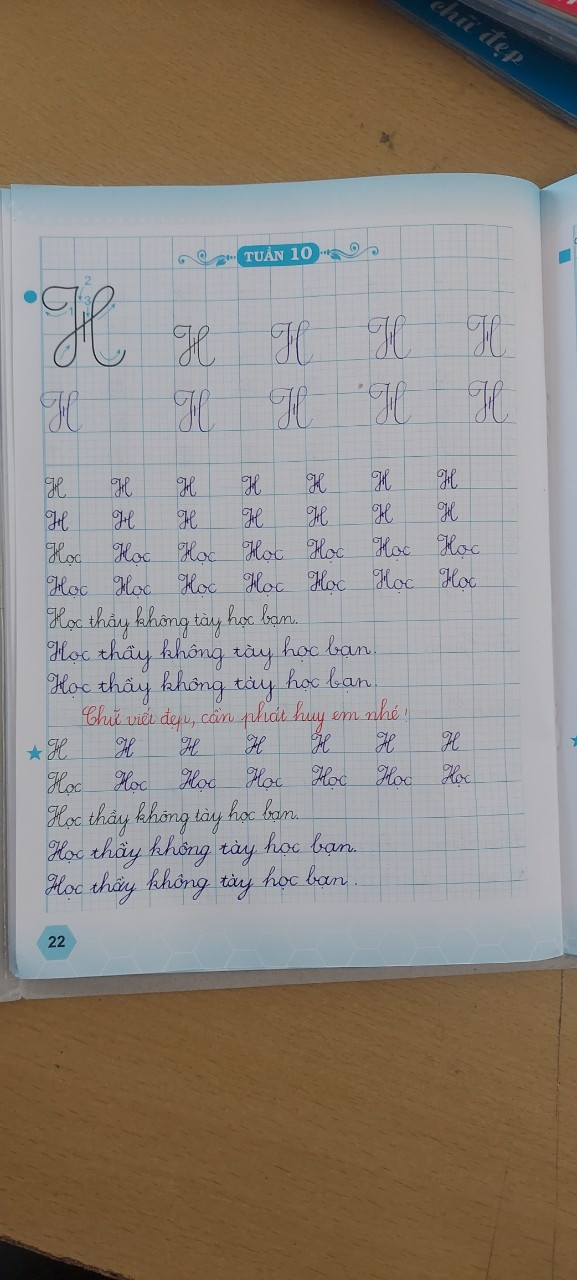 chữ đẹp
TUẦN 10
H 1 2 3 H H H H
H H H H H
H H H H H H H
H H H H H H H
Học Học Học Học Học Học Học
Học Học Học Học Học Học Học
Học thầy không tày học bạn.
Học thầy không tày học bạn.
Học thầy không tày học bạn.
Chữ viết đẹp, cần phát huy em nhé!
H H H H H H H
Học Học Học Học Học Học Học
Học thầy không tày học bạn.
Học thầy không tày học bạn.
Học thầy không tày học bạn.
22